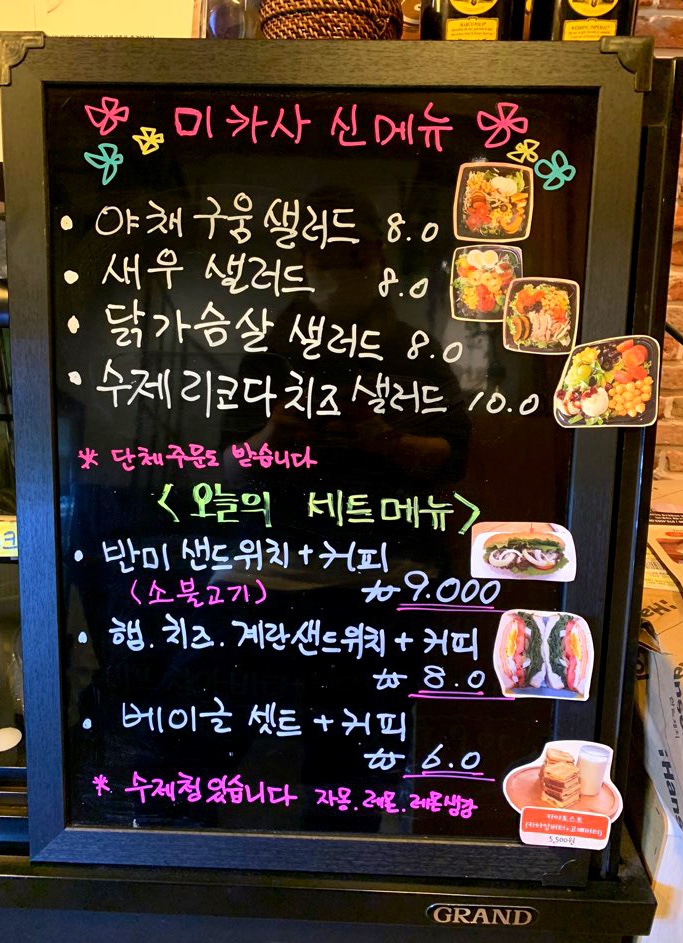 미카사 신메뉴
• 야채구웅샐러드 8.0
• 새우 샐러드 8.0
• 닭가슴살 샐러드 8.0
• 수제리코다치즈 샐러드 10.0
※ 단체주문도 받습니다
<오늘의 세트메뉴>
• 반미샌드위치+커피
(소불고기) ₩9.000
• 햄.치즈.계란샌드위치+커피
₩ 8.0
• 베이글 셋트+커피
₩ 6.0
※ 수제청있습니다 자몽.레몬.레몬생강
5,500원
GRAND